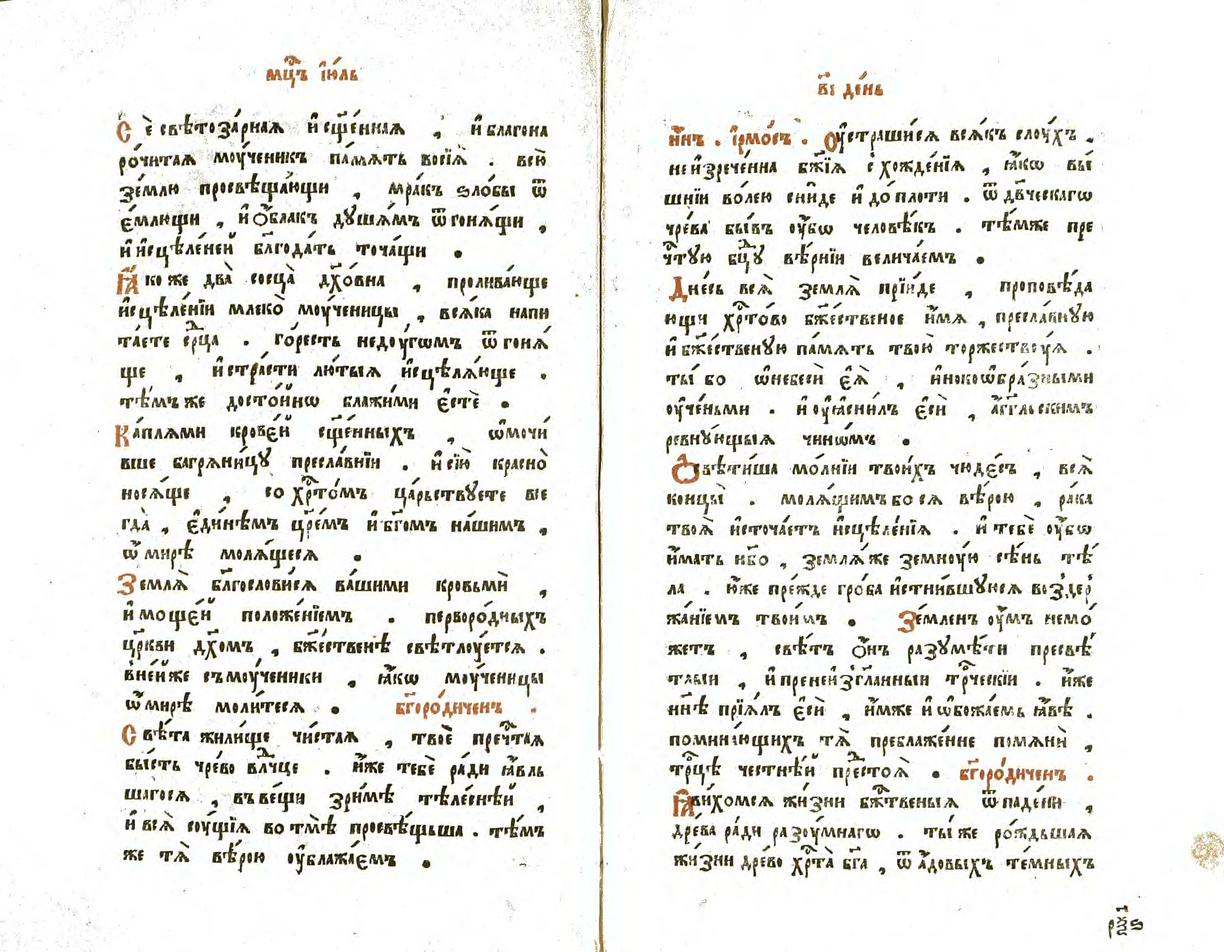 мц҃ъ і҆ю́ль
Сѐ свѣтоза́рнаѧ и҆ сщ҃е́ннаѧ , и҆ благона
ро́читаѧ мꙋ́ченикъ па́мѧть восїѧ̀ . всю̀
зе́млю просвѣща́ющи , мра́къ ѕло́бы ѿ
е́млющи , и҆ ѻ҆́блакъ дꙋша́мъ ѿгонѧ́щи ,
и҆ и҆сцѣле́ней бл҃года́ть точа́щи .
Ꙗ҆́коже два̀ сосца̀ дх҃о́вна , пролива́юще
и҆сцѣле́нїи млеко̀ мꙋ́ченицы , всѧ́ка напи
та́ете ср҃ца . го́ресть недꙋ́гѡмъ ѿгонѧ́
ще , и҆ стра́сти лю́тыѧ и҆сцѣлѧ́юще .
тѣ́мъже досто́йнѡ блажи́ми є҆стѐ .
Ка́плѧми кровє́й сщ҃е́нныхъ , ѡ҆мочи́
вше багрѧни́цꙋ пресла́внїи . и҆ сїю̀ красно̀
носѧ́ще , со хр҃то́мъ ца́рьствꙋете все
гда̀ , є҆ди́нѣмъ цр҃е́мъ и҆ бг҃омъ на́шимъ ,
ѡ҆ ми́рѣ молѧ́щесѧ .
Землѧ̀ бл҃гослови́сѧ ва́шими кровьмѝ ,
и҆ моще́й положе́нїемъ . перворо́дныхъ
цр҃кви дх҃омъ , бж҃е́ственѣ свѣтлꙋ́етсѧ .
в̾не́йже съмꙋ́ченики , ꙗ҆́кѡ мꙋ́ченицы
ѡ҆ ми́рѣ моли́тесѧ . бг҃оро́диченъ .
Свѣ́та жили́ще чи́стаѧ , твоѐ преч҃таѧ
бы́сть чре́во вл҃чце . и҆́же тебѐ ра́ди ꙗ҆́вль
шагосѧ , въ ве́щи зри́мѣ тѣле́снѣй ,
и҆ всѧ̀ сꙋ́щїѧ во тмѣ̀ просвѣ́щьша . тѣ́мъ
же тѧ̀ вѣ́рою ᲂу҆блажа́ємъ .
в҃і де́нь
ны҃нѣ . і҆рмо́съ . Оу҆страши́сѧ всѧ́къ слꙋ́хъ .
неизрече́нна бж҃їѧ схожде́нїѧ , ꙗ҆́кѡ вы́
шнїи во́лею сни́де и҆ до пло́ти . ѿ дв҃ческагѡ
чре́ва бы́въ ᲂу҆́бѡ человѣ́къ . тѣ́мже пре
ч҃тꙋю бц҃ꙋ вѣ́рнїи велича́емъ .
Дне́сь всѧ̀ землѧ̀ прїи́де , проповѣ́да
ющи хр҃то́во бж҃е́ственое и҆́мѧ , пресла́внꙋю
и҆ бж҃е́ственꙋю па́мѧть твою̀ торжествꙋ́ѧ .
ты́ бо ѡ҆небесѝ є҆ѧ̀ , и҆нокоѡбра́зными
ᲂу҆че́ньми . и҆ ᲂу҆ꙗ҆сни́лъ є҆сѝ , а҆́гг҃льскимъ
ревнꙋ́ющыѧ чи́нѡмъ .
Ѡ҆свѣти́ша мо́лнїи твои́хъ чюде́съ , всѧ̀
концы̀ . молѧ́щимъбосѧ вѣ́рою , ра́ка
твоѧ̀ и҆сточа́етъ и҆сцѣле́нїѧ . и҆ тебѐ ᲂу҆́бѡ
и҆́мать нб҃о , землѧ́же земнꙋ́ю сѣ́нь тѣ́
ла . ю҆́же пре́жде гро́ба и҆стни́вшꙋюсѧ воздер
жа́нїемъ твои́мъ . Зе́мленъ ᲂу҆́мъ немо́
жетъ , свѣ́тъ ѻ҆́нъ разꙋмѣ́ти пресвѣ́
тлыи , и҆ пренеизгла́нныи тр҃ческїи . и҆́же
ны҃нѣ прїѧ́лъ є҆сѝ , и҆́мже и҆ ѡ҆божа́емъ ꙗ҆́вѣ .
помина́ющихъ тѧ̀ преблаже́нне помѧнѝ ,
тр҃цѣ честнѣ́й престоѧ̀ . бг҃оро́диченъ .
Ꙗ҆ви́хомсѧ жи́зни бж҃твеныѧ ѿпаде́ни ,
дре́ва ра́ди разꙋ́мнагѡ . ты́ же ро́ждьшаѧ
жи́зни дре́во хр҃та̀ бг҃а , ѿ а҆́довыхъ те́мныхъ